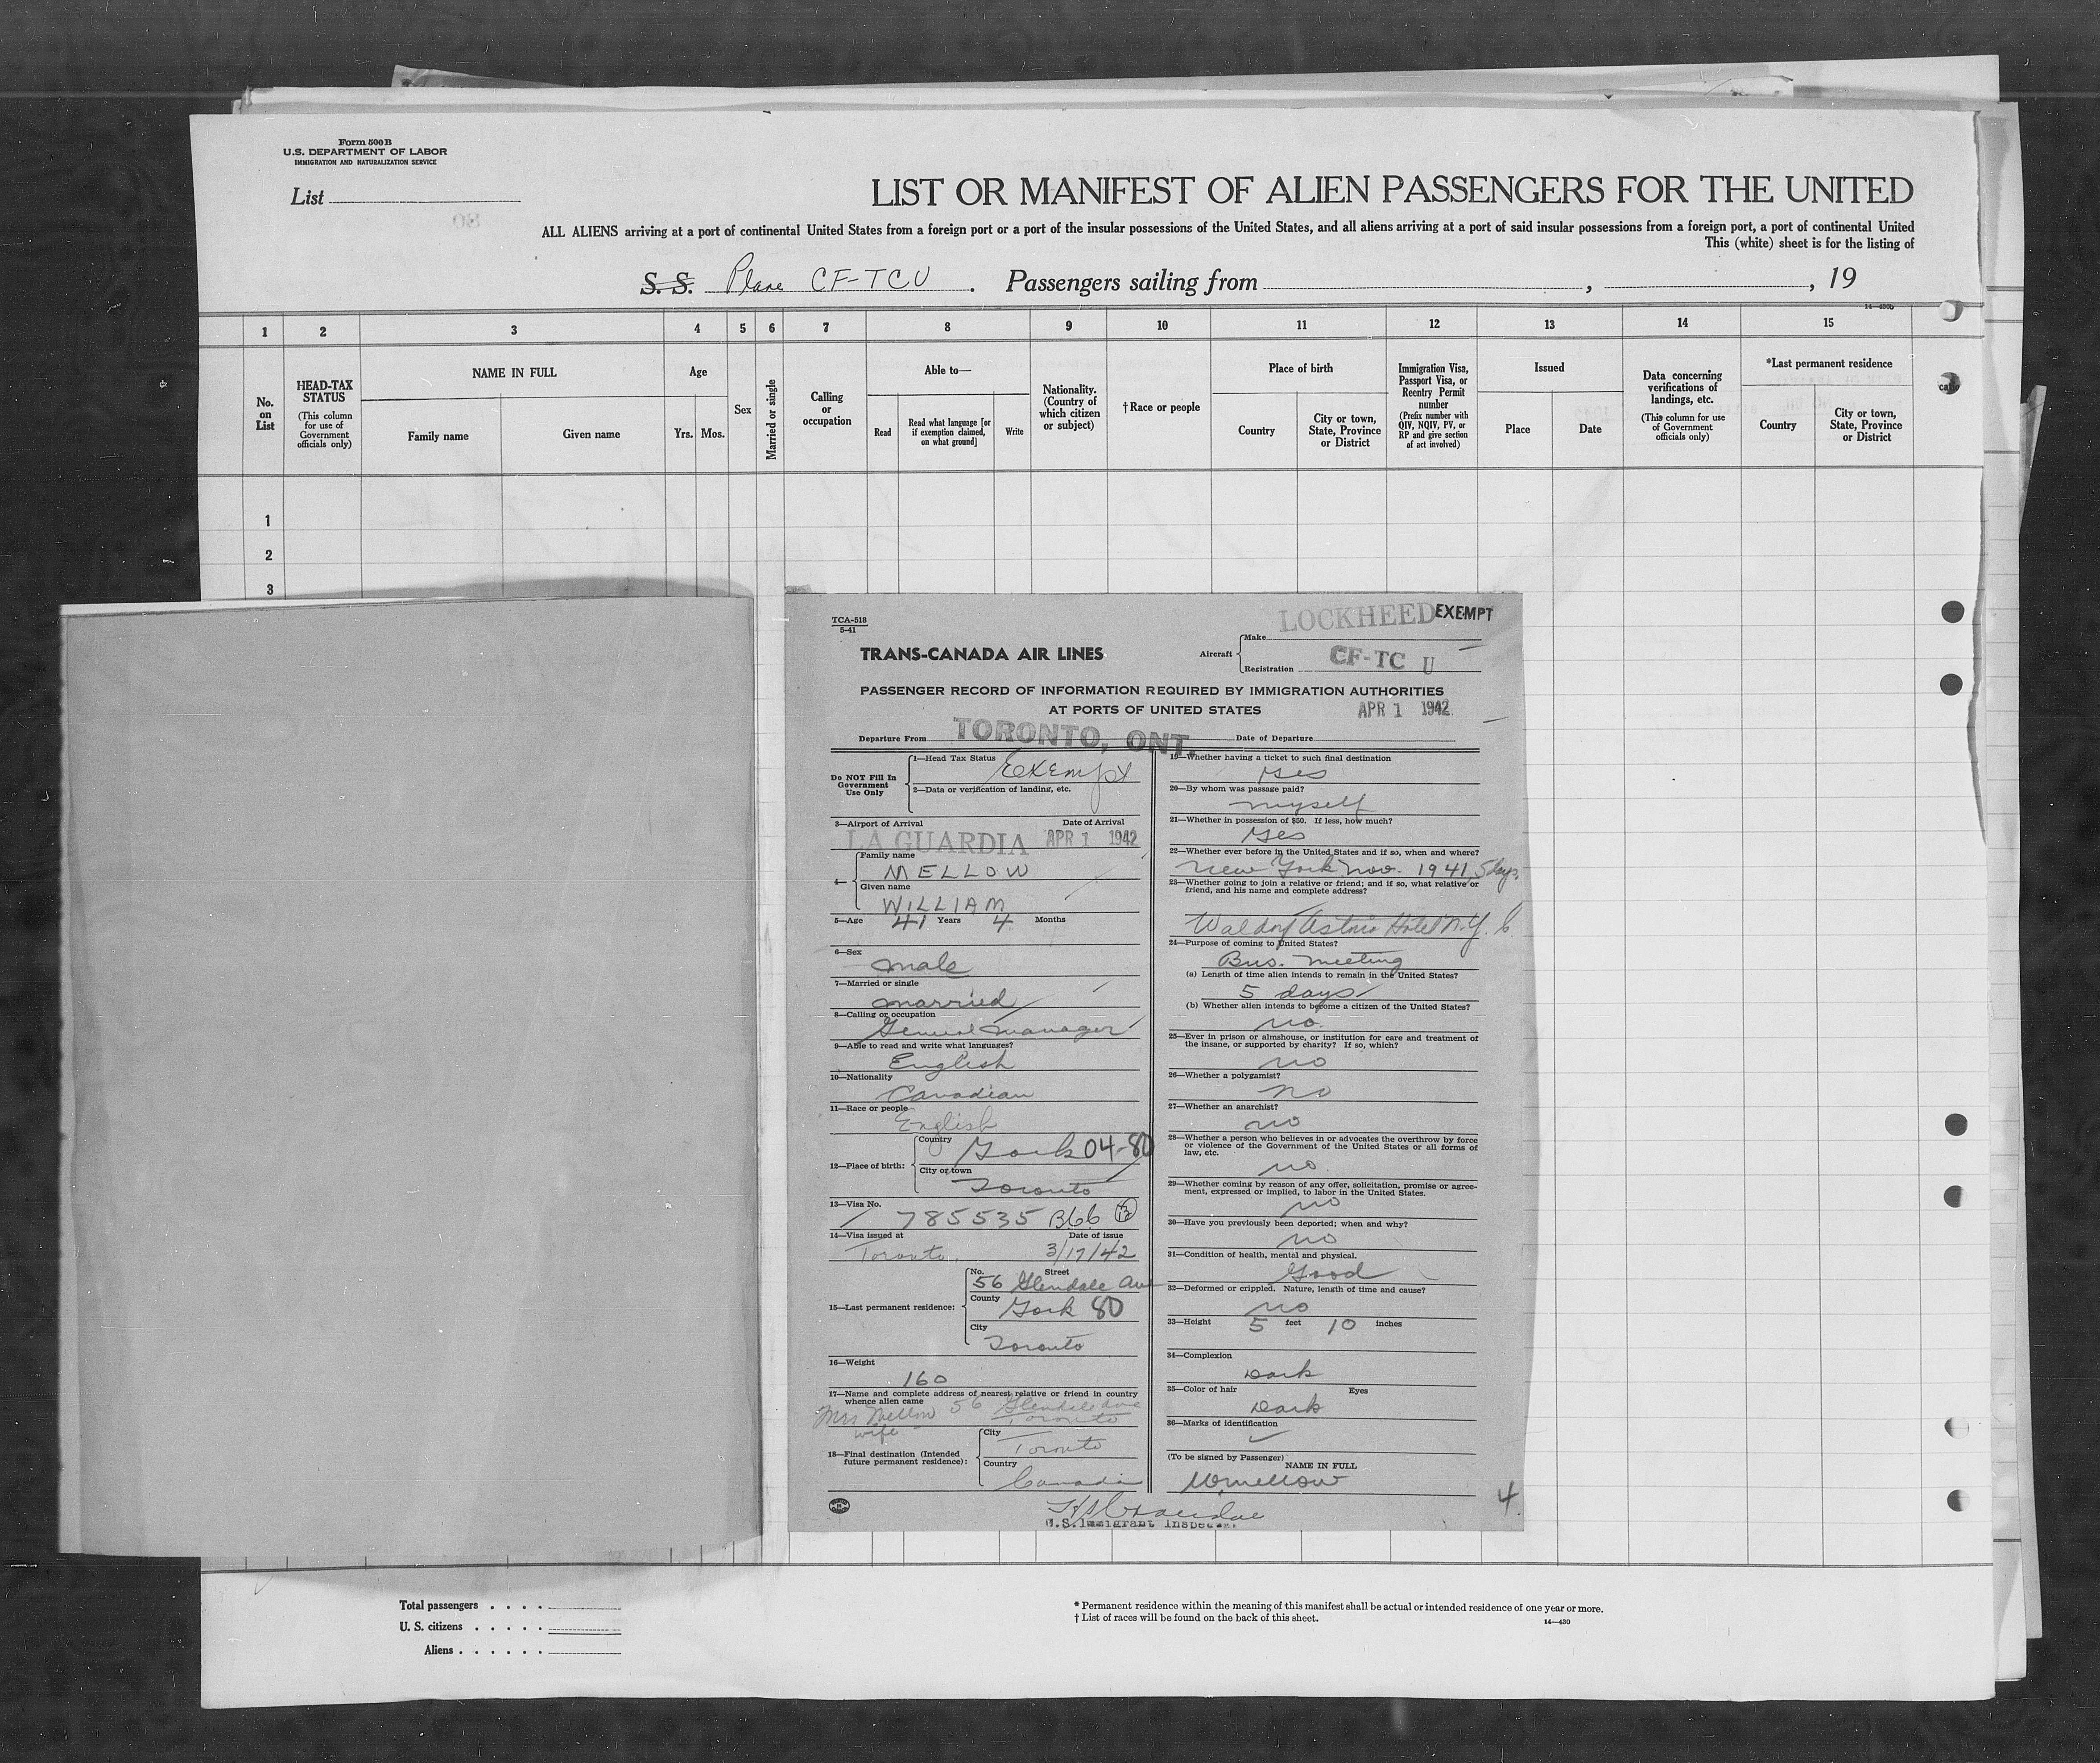 Form 500B
U.S. DEPARTMENT OF LABOR
IMMIGRATION AND NATURALIZATION SERVICE
List
LIST OR MANIFEST OF ALIEN PASSENGERS FOR THE UNITED
ALL ALIENS arriving at a port of continental United States from a foreign port or a port of the insular possessions of the United States, and all aliens arriving at a port of said insular possessions from a foreign port, a port of continental United
This (white) sheet is for the listing of
S. S. Plane CF-TCU . Passengers sailing from , , 19
14—430b
1 2 3 4 5 6 7 8 9 10 11 12 13 14 15
No. on List
HEAD-TAX STATUS
(This column for use of Government officials only)
NAME IN FULL
Family name
Given name
Age
Yrs. Mos.
Sex
Married or single
Calling or occupation
Able to—
Read
Read what language [or if exemption claimed, on what ground]
Write
Nationality. (Country of which citizen or subject)
†Race or people
Place of birth
Country
City or town, State, Province or District
Immigration Visa, Passport Visa, or Reentry Permit number
(Prefix number with QIV, NQIV, PV, or RP and give section of act involved)
Issued
Place
Date
Data concerning verifications of landings, etc.
(This column for use of Government officials only)
*Last permanent residence
Country
City or town, State, Province or District
1
2
3
TCA-518
5-41
LOCKHEED EXEMPT
TRANS-CANADA AIR LINES
Aircraft
Make
Registration CF-TC U
PASSENGER RECORD OF INFORMATION REQUIRED BY IMMIGRATION AUTHORITIES
AT PORTS OF UNITED STATES
APR 1 1942
Departure From TORONTO, ONT. Date of Departure
Do NOT Fill In Government Use Only
1—Head Tax Status Exempt
2—Data or verification of landing, etc.
3—Airport of Arrival Date of Arrival
LA GUARDIA APR 1 1942
4—
Family name
MELLOW
Given name
WILLIAM
5—Age 41 Years 4 Months
6—Sex
male
7—Married or single
married
8—Calling or occupation
General Manager
9—Able to read and write what languages?
English
10—Nationality
Canadian
11—Race or people
English
12—Place of birth:
Country
York 04-80
City or town
Toronto
13—Visa No.
785535 B66 13
14—Visa issued at Date of issue
Toronto, 3/17/42
15—Last permanent residence:
No. Street
56 Glendale Ave
County
York 80
City
Toronto
16—Weight
160
17—Name and complete address of nearest relative or friend in country whence alien came
Mrs Mellow 56 Glendale Ave
Toronto
wife
18—Final destination (Intended future permanent residence):
City
Toronto
Country
Canada
19—Whether having a ticket to such final destination
yes
20—By whom was passage paid?
myself
21—Whether in possession of $50. If less, how much?
yes
22—Whether ever before in the United States and if so, when and where?
New York Nov. 1941, 5 days
23—Whether going to join a relative or friend; and if so, what relative or friend, and his name and complete address?
Waldorf Astoria Hotel N.Y. C
24—Purpose of coming to United States?
Bus. meeting
(a) Length of time alien intends to remain in the United States?
5 days
(b) Whether alien intends to become a citizen of the United States?
no
25—Ever in prison or almshouse, or institution for care and treatment of the insane, or supported by charity? If so, which?
no
26—Whether a polygamist?
no
27—Whether an anarchist?
no
28—Whether a person who believes in or advocates the overthrow by force or violence of the Government of the United States or all forms of law, etc.
no
29—Whether coming by reason of any offer, solicitation, promise or agreement, expressed or implied, to labor in the United States.
no
30—Have you previously been deported; when and why?
no
31—Condition of health, mental and physical.
Good
32—Deformed or crippled. Nature, length of time and cause?
no
33—Height 5 feet 10 inches
34—Complexion
Dark
35—Color of hair Eyes
Dark
36—Marks of identification
(To be signed by Passenger)
NAME IN FULL
W Mellow
4
U.S. Immigrant Inspector
Total passengers . . . .
U. S. citizens . . . . .
Aliens . . . . . .
* Permanent residence within the meaning of this manifest shall be actual or intended residence of one year or more.
† List of races will be found on the back of this sheet.
14—430